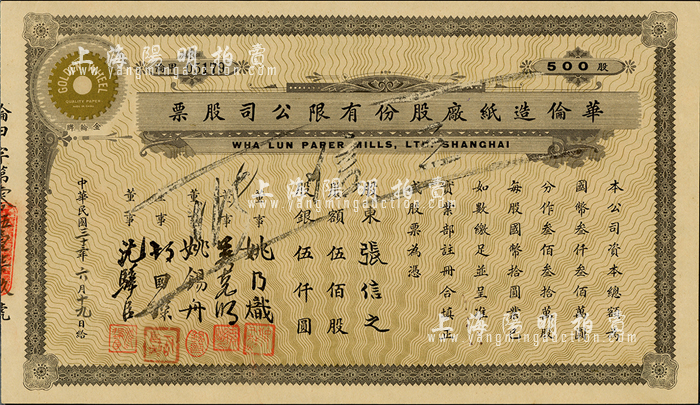 上海陽明拍賣
GOLDEN WHEEL
QUALITY PAPER
金輪牌
500股
票股司公限有份股廠紙造倫華
WHA LUN PAPER MILLS, LTD. SHANGHAI
本公司資本總額
國幣叁仟叁佰萬圓
分作叁佰叁拾萬股
每股國幣拾圓
如數繳足並呈准
實業部註冊合填
股票為憑
股東張信之
股額伍佰股
股銀伍仟圓
董事
姚乃熾
吳克明
姚錫舟
董事
中華民國三十年六月十九日給
上海陽明拍賣
www.yangmingauction.com
上海陽明拍賣
www.yangmingauction.com